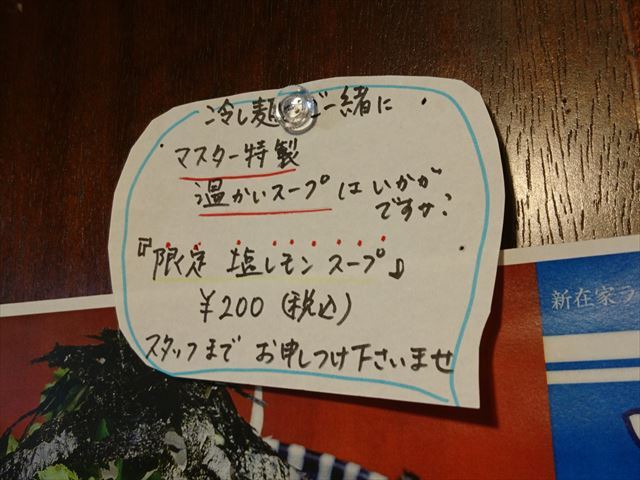 冷し麺とご一緒に
マスター特製
温かいスープはいかが
ですか?
『限定 塩レモンスープ』
¥200(税込)
スタッフまで お申しつけ下さいませ
新在家ラ